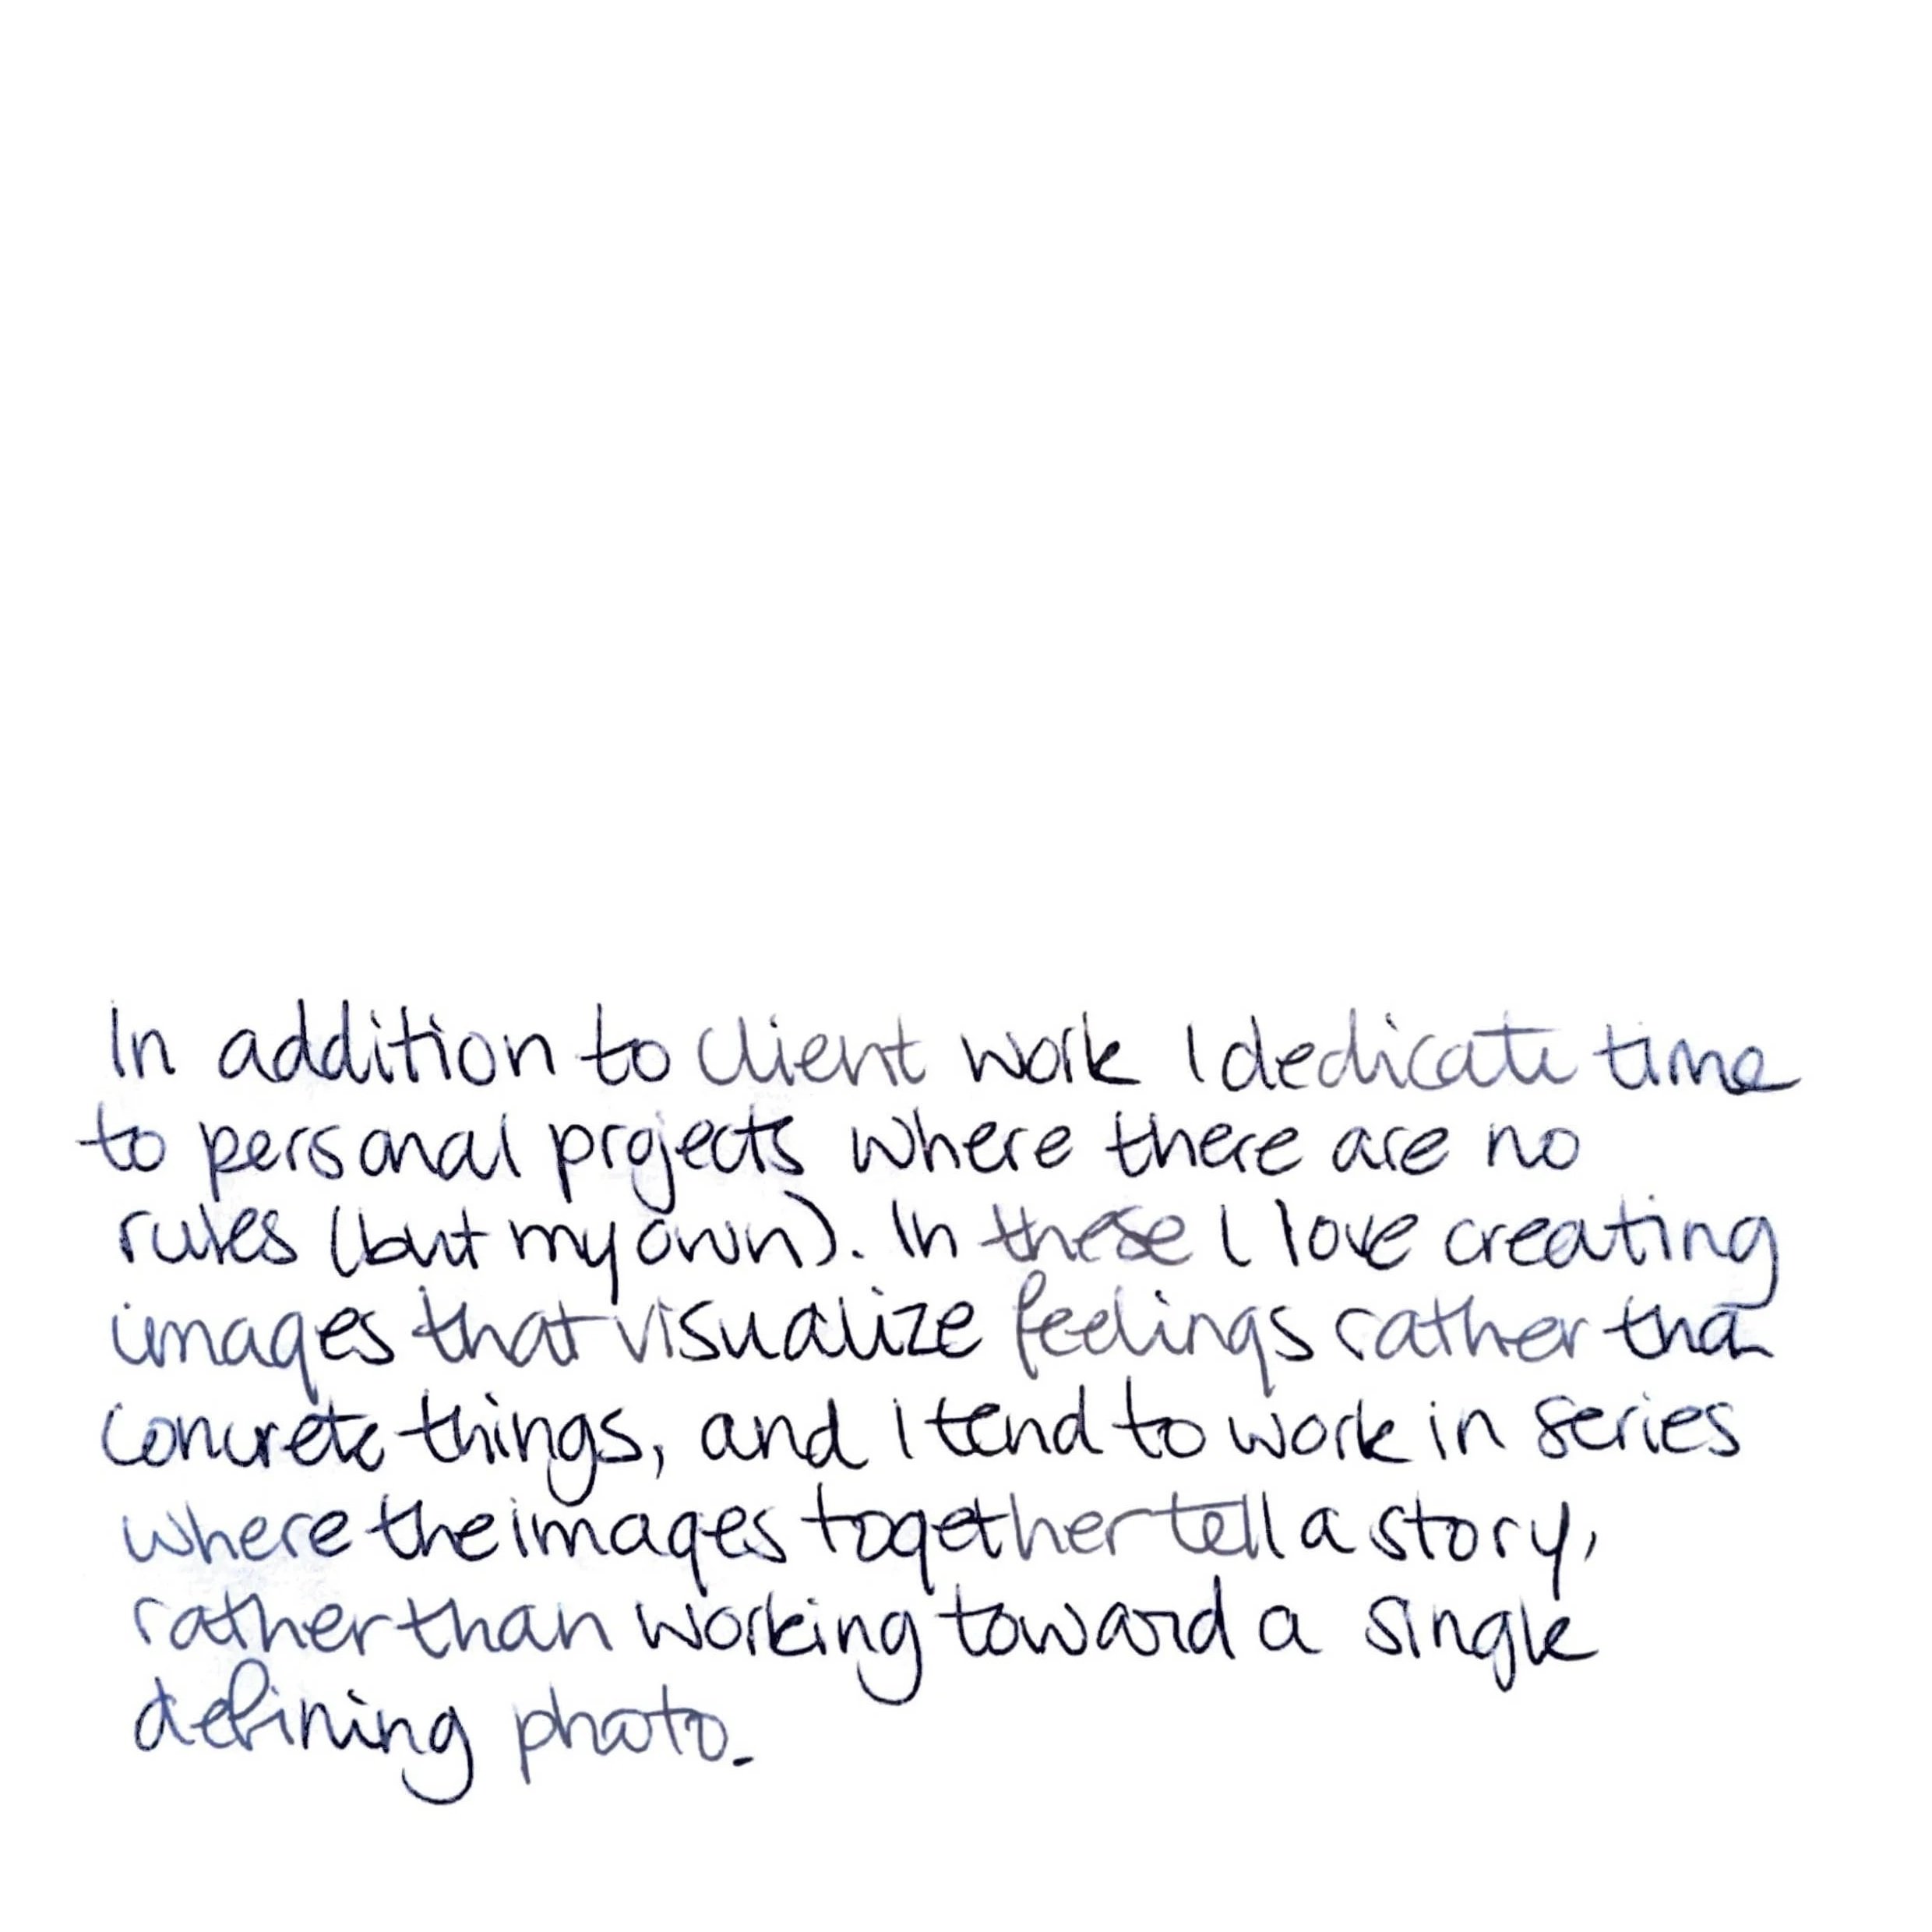 In addition to client work I dedicate time
to personal projects where there are no
rules (but my own). In these I love creating
images that visualize feelings rather than
concrete things, and I tend to work in series
where the images together tell a story,
rather than working toward a single
defining photo.